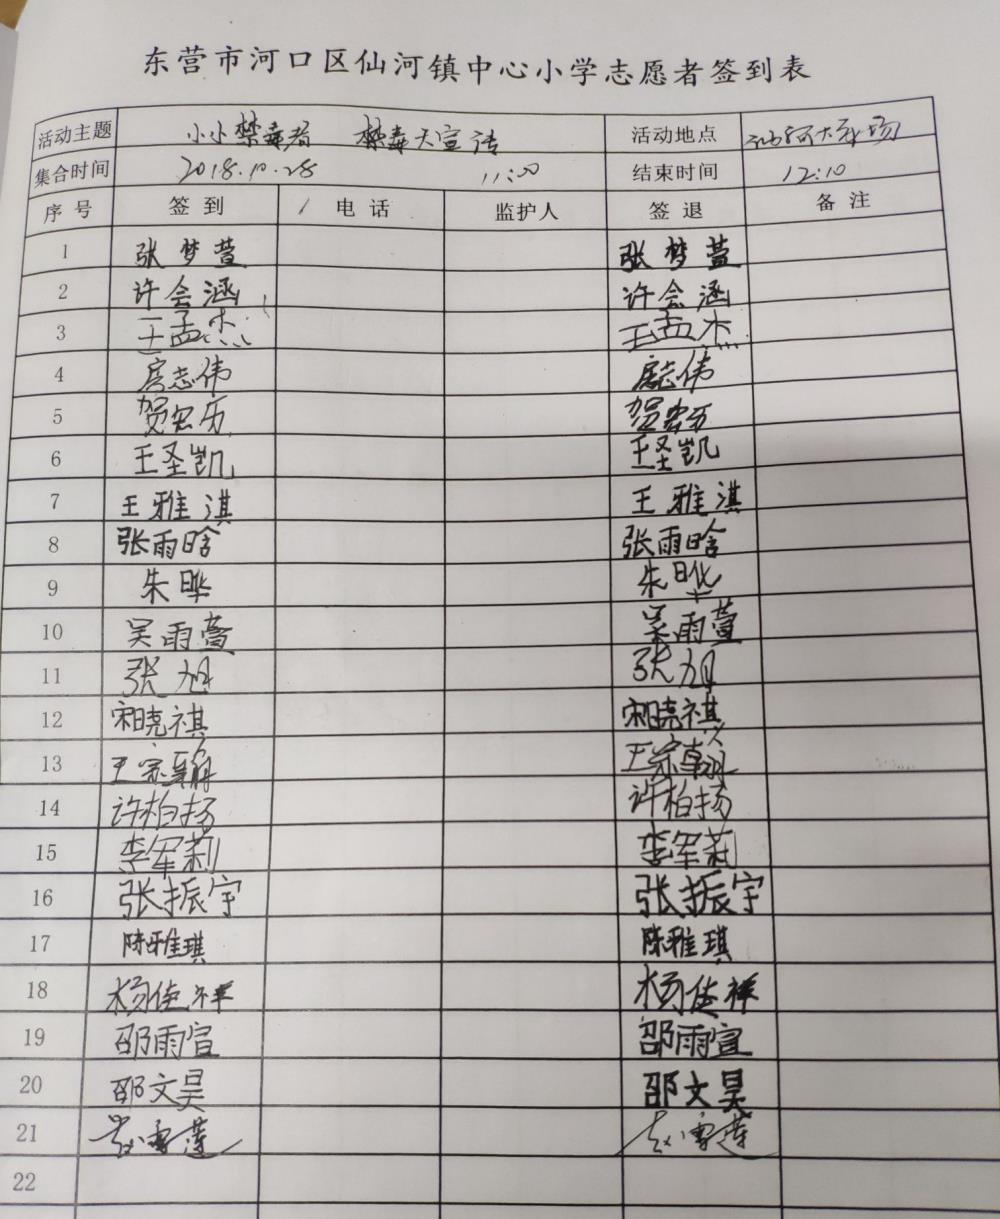 东营市河口区仙河镇中心小学志愿者签到表
活动主题 小小禁毒者 禁毒大宣传 活动地点
集合时间 2018.10.28 11:00 结束时间 12:10
序号 签到 电话 监护人 签退 备注
1 张梦萱 张梦萱
2 许会涵 许会涵
3 王孟杰 王孟杰
4 房志伟 房志伟
5 贺宏历 贺宏历
6 王圣凯 王圣凯
7 王雅淇 王雅淇
8 张雨晗 张雨晗
9 朱晔 朱晔
10 吴雨萱 吴雨萱
11 张旭 张旭
12 宋晓祺 宋晓祺
13 王宗翰 王宗翰
14 许柏扬 许柏扬
15 李军莉 李军莉
16 张振宇 张振宇
17 陈雅琪 陈雅琪
18 杨佳祥 杨佳祥
19 邵雨宣 邵雨宣
20 邵文昊 邵文昊
21 赵雪莲 赵雪莲
22